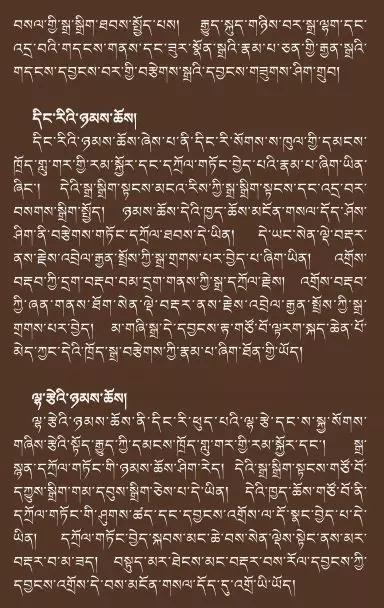 བསལ་གྱི་སྒྲ་སྒྲིག་ཐབས་སྤྱོད་པས། རྒྱུད་སྐུད་གཉིས་བར་སྒྲ་ལྷག་དང་
འདྲ་བའི་གདངས་གནས་དང་ཟུར་སྣོན་སྒྲའི་རྣམ་པ་ཅན་གྱི་རྒྱན་སྒྲའི་
གདངས་དབྱངས་བར་གྱི་བརྩེགས་སྒྲའི་དབྱངས་གཟུགས་ཤིག་གྲུབ།
དིང་རིའི་ཉམས་ཆོས།
དིང་རིའི་ཉམས་ཆོས་ཞེས་པ་ནི་དིང་རི་སོགས་ས་ཁུལ་གྱི་དམངས་
ཁྲོད་གླུ་གར་གྱི་རམ་སྐྱོར་དང་དཀྲོལ་གཏོང་བྱེད་པའི་རྣམ་པ་ཞིག་ཡིན་
ཞིང་། དེའི་སྒྲ་སྒྲིག་སྟངས་མངའ་རིས་ཀྱི་སྒྲ་སྒྲིག་སྟངས་དང་འདྲ་བར་
བསགས་སྒྲིག་སྤྱོད། ཉམས་ཆོས་དེའི་ཁྱད་ཆོས་མངོན་གསལ་དོད་ཤོས་
ཤིག་ནི་བརྩེགས་གཏོང་དཀྲོལ་ཐབས་དེ་ཡིན། དེ་ཡང་སེན་ལྡེ་བརྡར་
ནས་རྗེས་འབྲེལ་རྒྱན་སྤྲོས་ཀྱི་སྒྲ་གྲགས་པར་བྱེད་པ་ཞིག་ཡིན། འགྲོས་
བརྡབ་ཀྱི་དྲག་བརྡབ་བམ་དྲག་གནས་ཀྱི་སྒྲ་དཀྲོལ་རྗེས། འགྲོས་བརྡབ་
ཀྱི་ཞན་གནས་ཐོག་སེན་ལྡེ་བརྡར་ནས་རྗེས་འབྲེལ་རྒྱན་སྤྲོས་ཀྱི་སྒྲ་
གྲགས་པར་བྱེད། མ་གཞི་སྒྲ་དེ་དབྱངས་རྟ་གཙོ་བོ་ལྟར་གསྐད་ཆེན་པོ་
མེད་ཀྱང་དེའི་ཁྲོད་སྒྲ་བརྩེགས་ཀྱི་རྣམ་པ་ཞིག་ཐོན་གྱི་ཡོད།
ལྷ་རྩེའི་ཉམས་ཆོས།
ལྷ་རྩེའི་ཉམས་ཆོས་ནི་དིང་རི་ཕུད་པའི་ལྷ་རྩེ་དང་ས་སྐྱ་སོགས་
གཞིས་རྩེའི་སྟོད་རྒྱུད་ཀྱི་དམངས་ཁྲོད་གླུ་གར་གྱི་རམ་སྐྱོར་དང་། སྒྲ་
སྙན་དཀྲོལ་གཏོང་གི་ཉམས་ཆོས་ཤིག་རེད། དེའི་སྒྲ་སྒྲིག་སྟངས་གཙོ་བོ་
དཀྱུས་སྒྲིག་གམ་དབུས་སྒྲིག་ཅེས་པ་དེ་ཡིན། དེའི་ཁྱད་ཆོས་གཙོ་བོ་ནི་
དཀྲོལ་གཏོང་གི་ཤུགས་ཚད་དང་དབྱངས་འགྲོས་ལ་དོ་སྣང་བྱེད་པ་དེ་
ཡིན། དཀྲོལ་གཏོང་བྱེད་སྐབས་མང་ཆེ་བས་སེན་ལྡེས་སྟེང་ནས་མར་
བརྡར་བ་མ་ཟད། བསྟུད་མར་ཐེངས་མང་བརྡར་བས་རོལ་དབྱངས་ཀྱི་
དབྱངས་འགྲོས་དེ་བས་མངོན་གསལ་དོད་དུ་འགྲོ་ཡི་ཡོད།